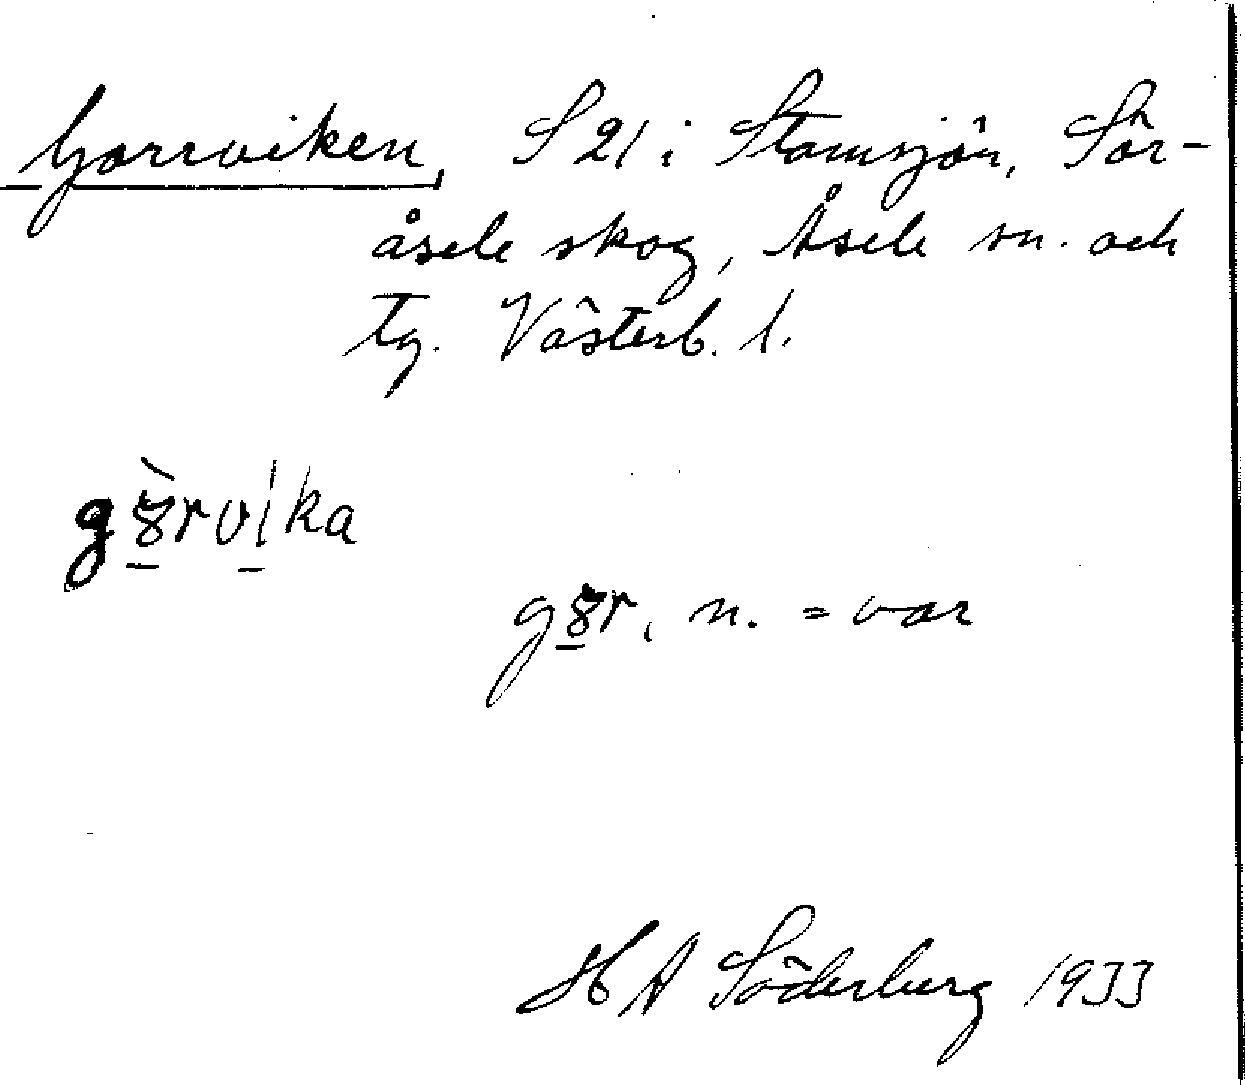 Gorrviken, S 21 i Stamsjön, Sör-
åsele skog, Åsele sn. och
tg. Västerb. l.
gȣ̀rvika
gȣr, n. = var
H A Söderberg 1933